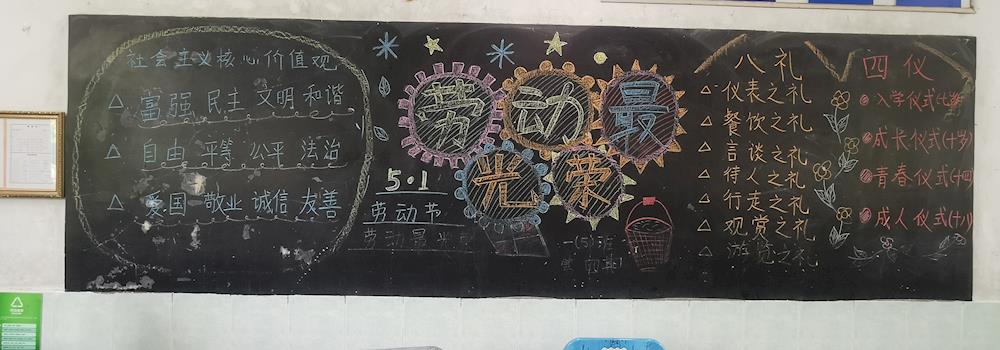 社会主义核心价值观
富强 民主 文明 和谐
自由 平等 公平 法治
爱国 敬业 诚信 友善
劳动最
光荣
5·1
劳动节
劳动最光荣
一(5)班
八礼
仪表之礼
餐饮之礼
言谈之礼
待人之礼
行走之礼
观赏之礼
游览之礼
四仪
入学仪式(七岁)
成长仪式(十岁)
青春仪式(十四
成人仪式(十八)